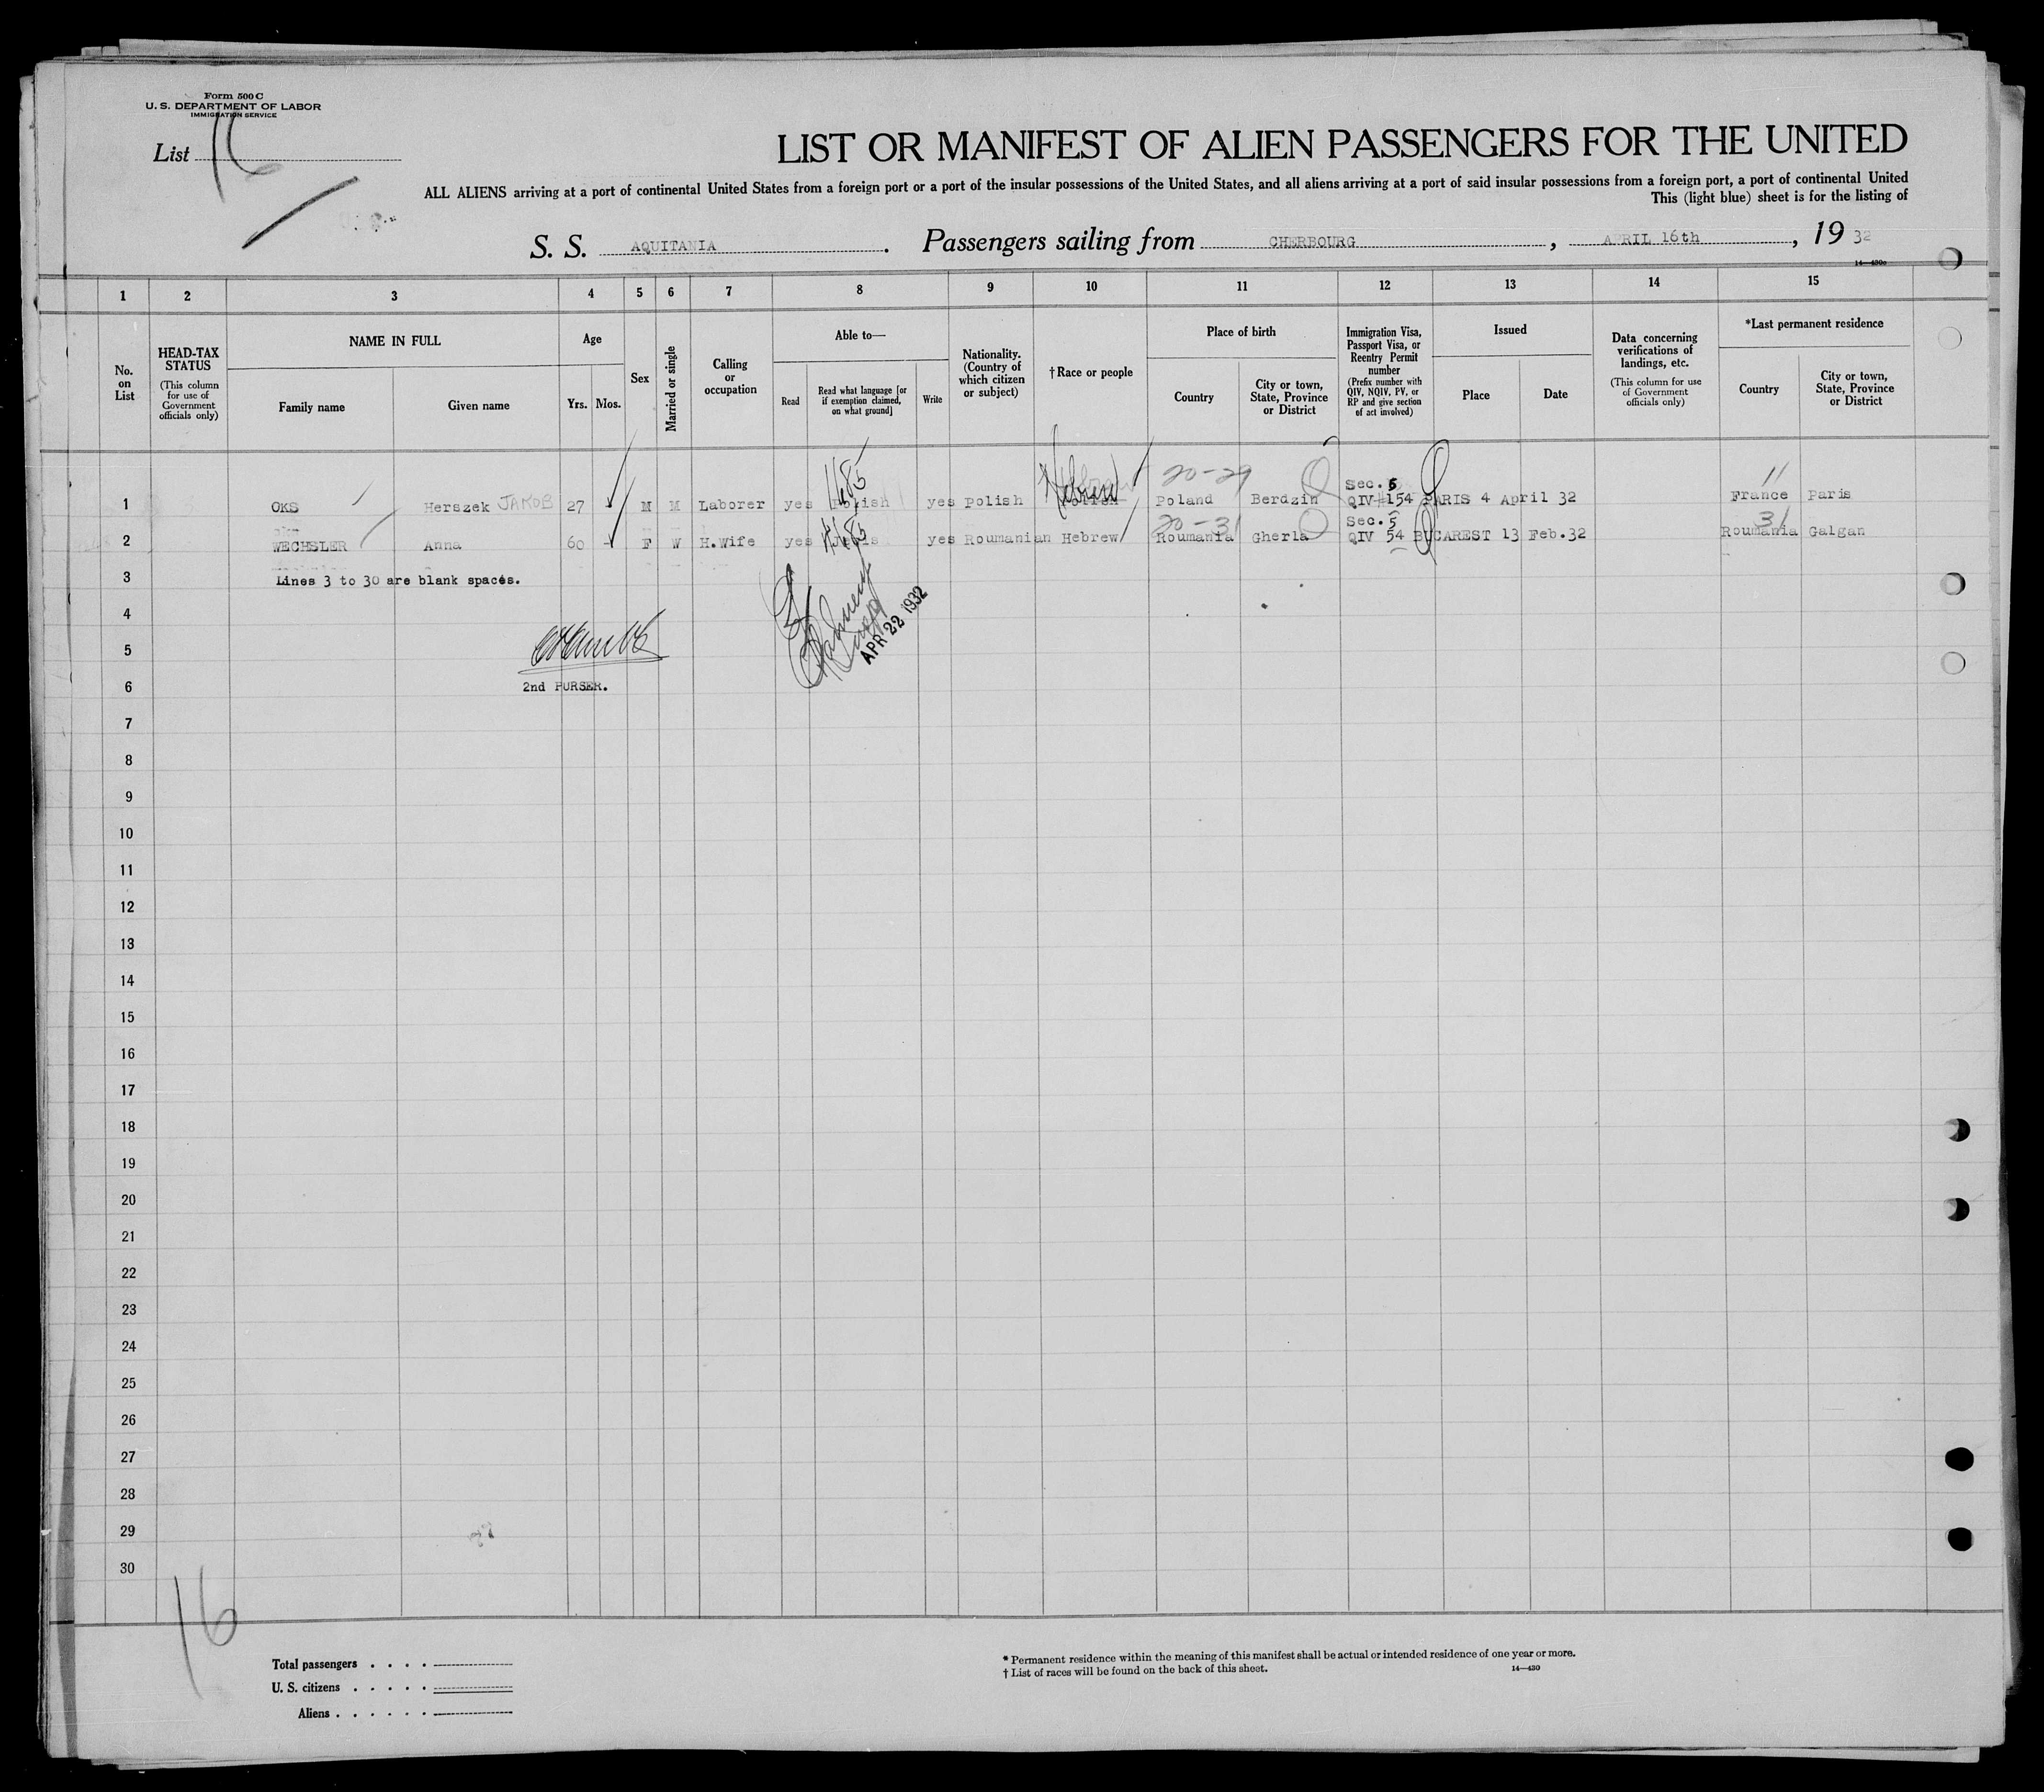 Form 500 C
U. S. DEPARTMENT OF LABOR
IMMIGRATION SERVICE
List 16
LIST OR MANIFEST OF ALIEN PASSENGERS FOR THE UNITED
ALL ALIENS arriving at a port of continental United States from a foreign port or a port of the insular possessions of the United States, and all aliens arriving at a port of said insular possessions from a foreign port, a port of continental United
This (light blue) sheet is for the listing of
S. S. AQUITANIA. Passengers sailing from CHERBOURG, APRIL 16th, 19 32
14—430c
1 2 3 4 5 6 7 8 9 10 11 12 13 14 15
No. on List
HEAD-TAX STATUS (This column for use of Government officials only)
NAME IN FULL
Family name
Given name
Age
Yrs. Mos.
Sex
Married or single
Calling or occupation
Able to—
Read
Read what language [or if exemption claimed, on what ground]
Write
Nationality. (Country of which citizen or subject)
†Race or people
Place of birth
Country
City or town, State, Province or District
Immigration Visa, Passport Visa, or Reentry Permit number (Prefix number with QIV, NQIV, PV, or RP and give section of act involved)
Issued
Place
Date
Data concerning verifications of landings, etc. (This column for use of Government officials only)
*Last permanent residence
Country
City or town, State, Province or District
20-29 Sec. 5 11
1 OKS Herszek JAKOB 27 M M Laborer yes Polish yes Polish Hebrew Poland Berdzin QIV #154 PARIS 4 April 32 France Paris
20-31 Sec. 5 31
2 WECHSLER Anna 60 F W H.Wife yes yes Roumanian Hebrew Roumania Gherla QIV 54 BUCAREST 13 Feb.32 Roumania Galgan
3 Lines 3 to 30 are blank spaces.
4
APR 22 1932
5
6 2nd PURSER.
7
8
9
10
11
12
13
14
15
16
17
18
19
20
21
22
23
24
25
26
27
28
29
30
16
Total passengers . . . .
U. S. citizens . . . . .
Aliens . . . . . .
* Permanent residence within the meaning of this manifest shall be actual or intended residence of one year or more.
† List of races will be found on the back of this sheet.
14—430